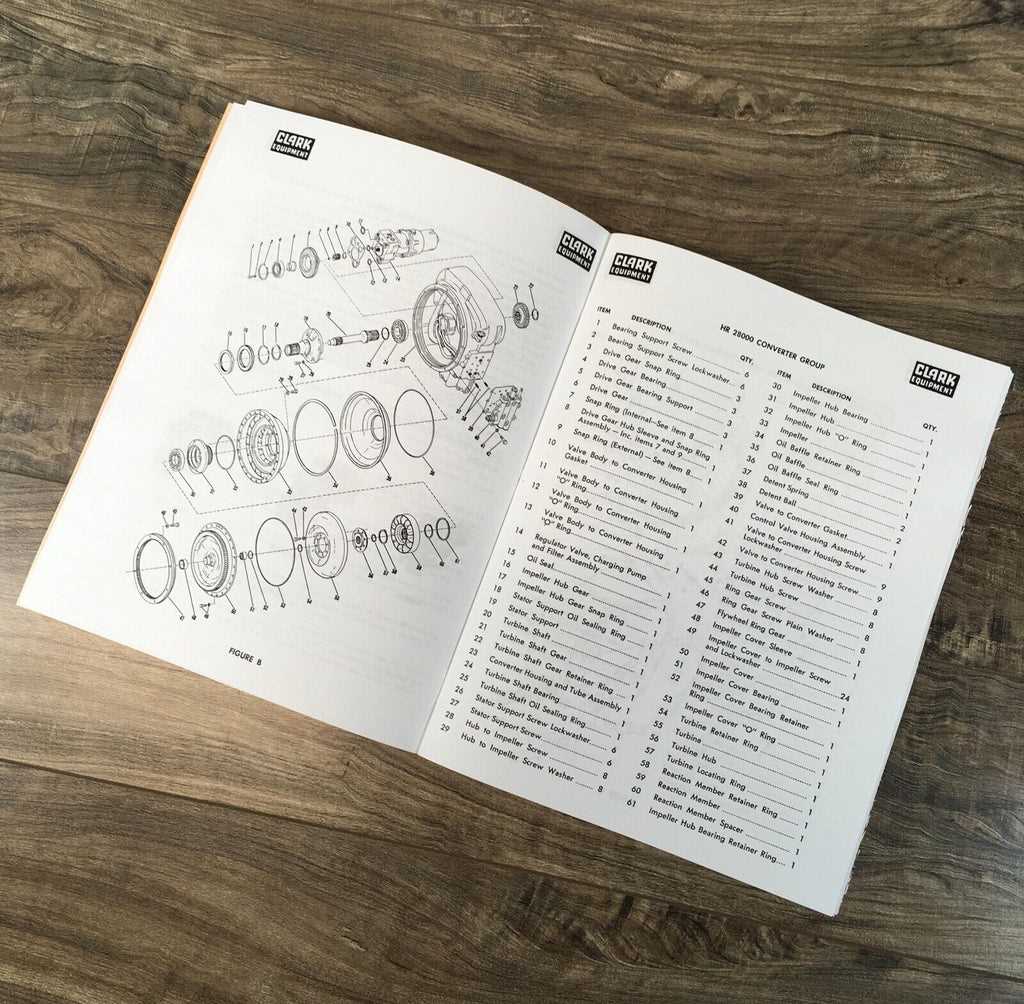 CLARK
EQUIPMENT
CLARK
EQUIPMENT
FIGURE B
CLARK
EQUIPMENT
CLARK
EQUIPMENT
HR 28000 CONVERTER GROUP
ITEM DESCRIPTION QTY.
1 Bearing Support Screw 6
2 Bearing Support Screw Lockwasher 6
3 Drive Gear Snap Ring 3
4 Drive Gear Bearing 3
5 Drive Gear Bearing Support 3
6 Drive Gear 3
7 Snap Ring (Internal—See item 8
8 Drive Gear Hub Sleeve and Snap Ring
Assembly — Inc. items 7 and 9 1
9 Snap Ring (External) — See item 8
10 Valve Body to Converter Housing
Gasket 1
11 Valve Body to Converter Housing
"O" Ring 1
12 Valve Body to Converter Housing
"O" Ring 1
13 Valve Body to Converter Housing
"O" Ring 1
14 Regulator Valve, Charging Pump
and Filter Assembly 1
15 Oil Seal 1
16 Impeller Hub Gear 1
17 Impeller Hub Gear Snap Ring 1
18 Stator Support Oil Sealing Ring 1
19 Stator Support 1
20 Turbine Shaft 1
21 Turbine Shaft Gear 1
22 Turbine Shaft Gear Retainer Ring 1
23 Converter Housing and Tube Assembly 1
24 Turbine Shaft Bearing 1
25 Turbine Shaft Oil Sealing Ring 1
26 Stator Support Screw Lockwasher 6
27 Stator Support Screw 6
28 Hub to Impeller Screw 8
29 Hub to Impeller Screw Washer 8
ITEM DESCRIPTION QTY.
30 Impeller Hub Bearing 1
31 Impeller Hub 1
32 Impeller Hub "O" Ring 1
33 Impeller 1
34 Oil Baffle Retainer Ring 1
35 Oil Baffle 1
36 Oil Baffle Seal Ring 1
37 Detent Spring 2
38 Detent Ball 2
39 Valve to Converter Gasket 1
40 Control Valve Housing Assembly 1
41 Valve to Converter Housing Screw
Lockwasher 9
42 Valve to Converter Housing Screw 9
43 Turbine Hub Screw Washer 8
44 Turbine Hub Screw 8
45 Ring Gear Screw 8
46 Ring Gear Screw Plain Washer 8
47 Flywheel Ring Gear 1
48 Impeller Cover Sleeve 1
49 Impeller Cover to Impeller Screw
and Lockwasher 24
50 Impeller Cover 1
51 Impeller Cover Bearing 1
52 Impeller Cover Bearing Retainer
Ring 1
53 Impeller Cover "O" Ring 1
54 Turbine Retainer Ring 1
55 Turbine 1
56 Turbine Hub 1
57 Turbine Locating Ring 1
58 Reaction Member Retainer Ring 1
59 Reaction Member 1
60 Reaction Member Spacer 1
61 Impeller Hub Bearing Retainer Ring 1